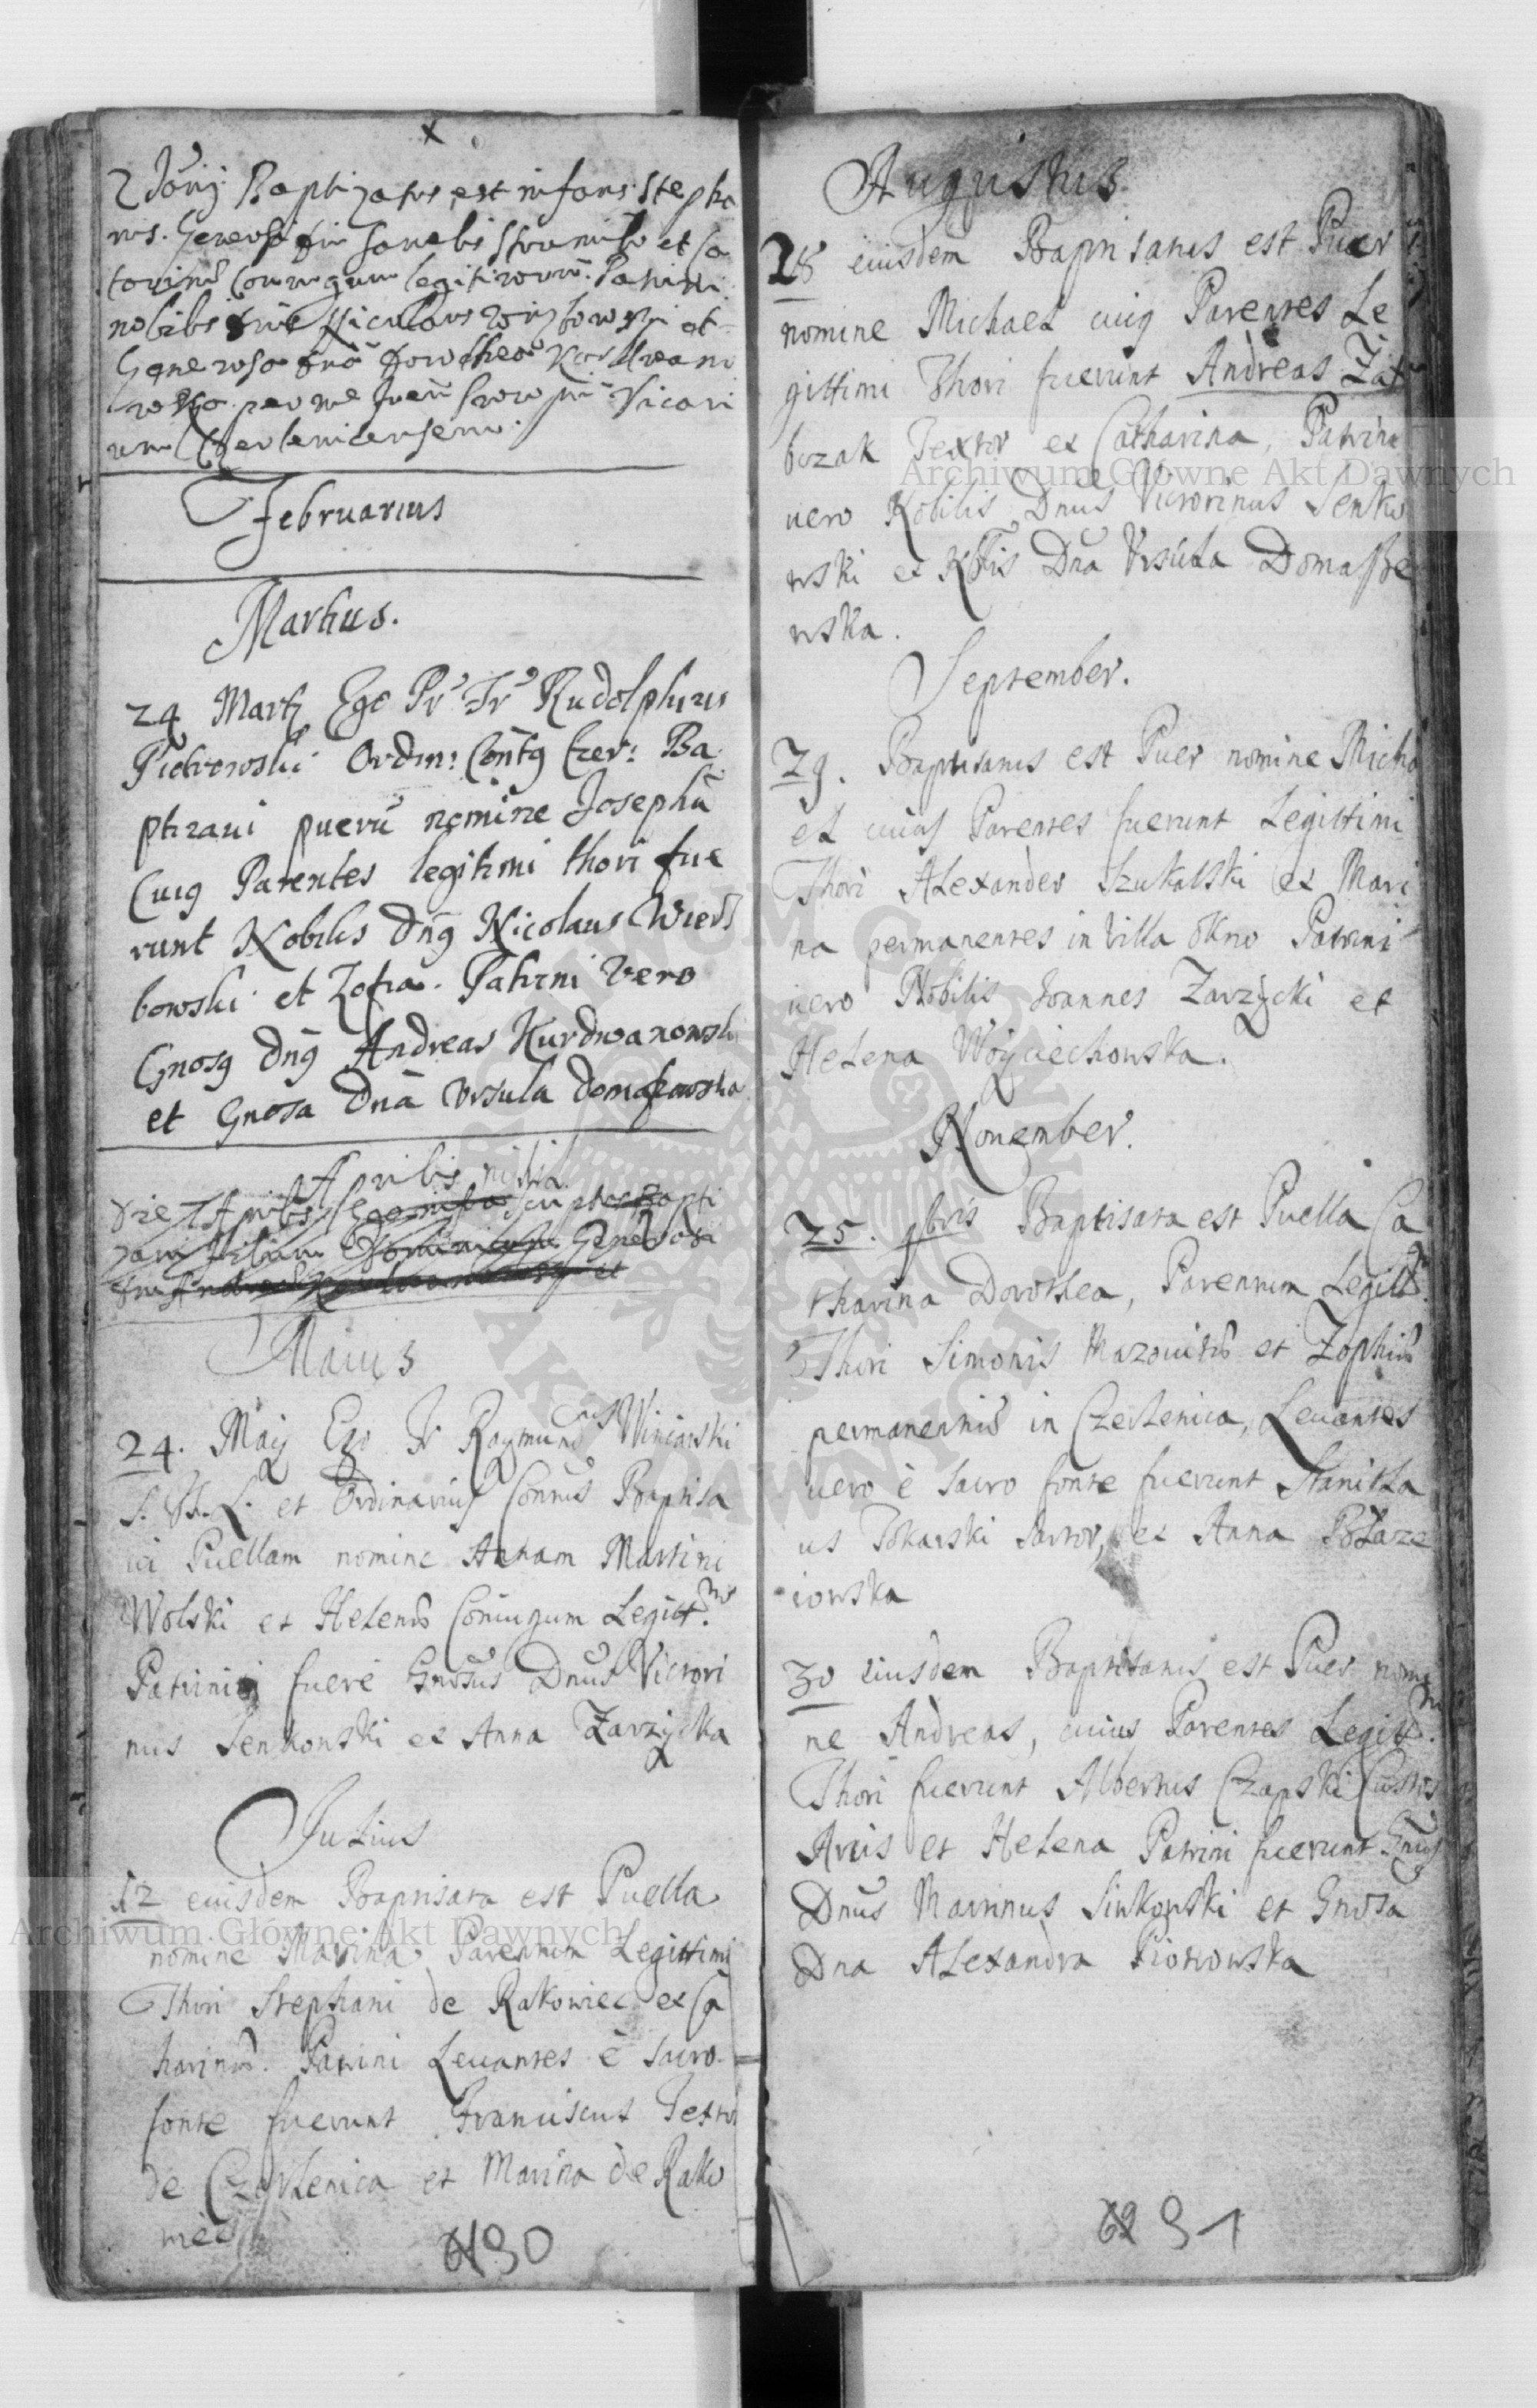 x
Baptizatus est infans Stepha
nus. Generosi
Coniugum legitimorum. Patrini
nobilis Nicolaus et
Generosa
per me Vicari
um Czerlenicensem.
Februarius
Martius.
24 Martij Ego Pr Fr Rudolphus
Piotrowski Ordin: Contg Czer: Ba
ptizaui pueru nomine Josephu
Cuig Parentes legitimi thori fue
runt Nobilis Dng Nicolaus Wierz
bowski et Zofia. Patrini vero
Gnosg Dng Andreas Kurdwanowski
et Gnosa Dna Vrsula Domaszewska
Aprilis nihil
Maius
24. Maij Ego Fr Raymundus Winiarski
S. Th. L. et Ordinarius Connus Baptisa
ui Puellam nomine Annam Martini
Wolski et Helenæ Coniugum Legitt.m
Patrini fuere Gnosus Dnus Victori
nus Senkowski et Anna Zarzycka
Julius
12 eiusdem Baptisata est Puella
nomine Marina Parentum Legittimi
Thori Stephani de Rakowiec et Ca
harinæ. Patrini Leuantes è sacro
fonte fuerunt Franciscus Textor
de Czerlenica et Marina de Rako
wiec
90
Augustus
28 eiusdem Baptisatus est Puer
nomine Michael cuig Parentes Le
gittimi Thori fuerunt Andreas Zat
buzak Textor et Catharina, Patrini
uero Nobilis Dnus Victorinus Senko
wski et Nblis Dna Vrsula Domasze
wska.
September.
29. Baptisatus est Puer nomine Micha
el cuius Parentes fuerunt Legittimi
Thori Alexander Szukalski et Mari
na permanentes in Villa Okno Patrini
uero Nobilis Joannes Zarzycki et
Helena Woyciechowska.
Nouember.
25. 9bris Baptisata est Puella Ca
tharina Dorothea, Parentum Legitt.
Thori Simonis Mazouitæ et Zophiæ
permanentiu in Czerlenica, Leuantes
uero è sacro fonte fuerunt Stanisla
us Tokarski sartor, et Anna Polaze
iowska
30 eiusdem Baptisatus est Puer nomi
ne Andreas, cuius Parentes Legitt.m
Thori fuerunt Albertus Czapski Custos
Arcis et Helena Patrini fuerunt Gnus
Dnus Martinus Sinkowski et Gnosa
Dna Alexandra Piotrowska
91
Archiwum Główne Akt Dawnych
Archiwum Główne Akt Dawnych